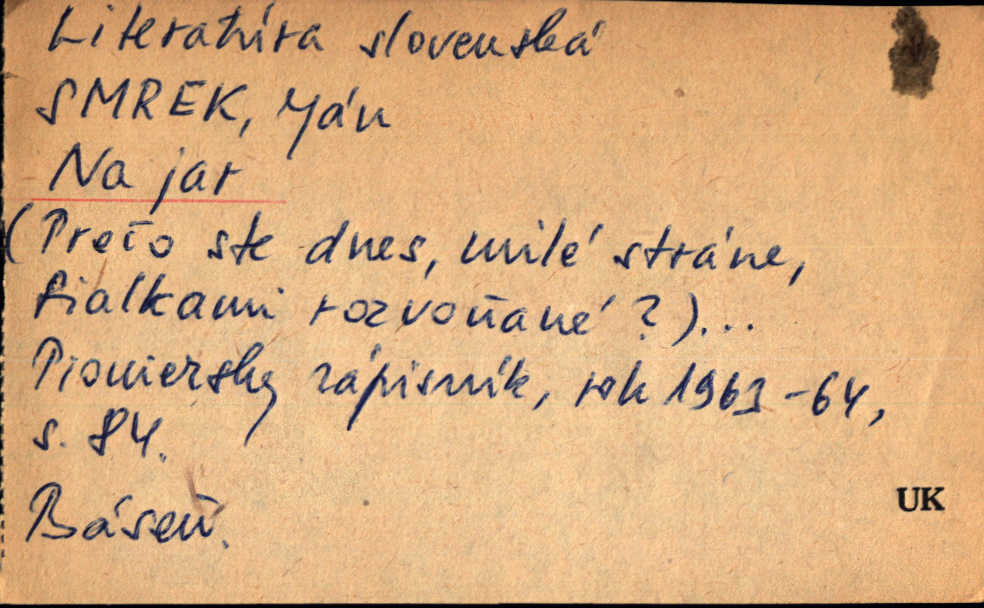 Literatúra slovenská
SMREK, Ján
Na jar
(Prečo ste dnes, milé stráne,
fialkami rozvoňané?)...
Pioniersky zápisník, rok 1963-64,
s. 84.
Báseň.
UK